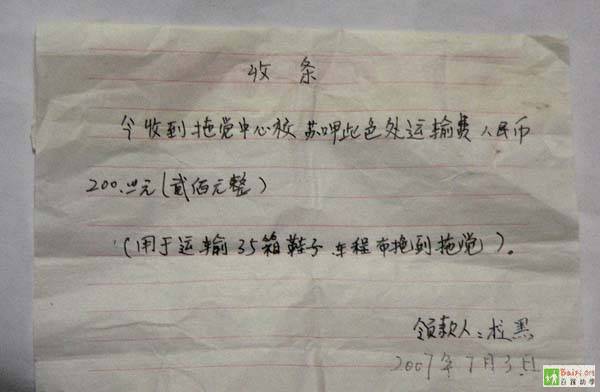 收条
今收到拖觉中心校苏呷此色处运输费人民币
200.00元(贰佰元整)
(用于运输35箱鞋子车程布拖到拖觉)。
领款人:拉黑
2007年7月3日
Baixi.org
百溪助学